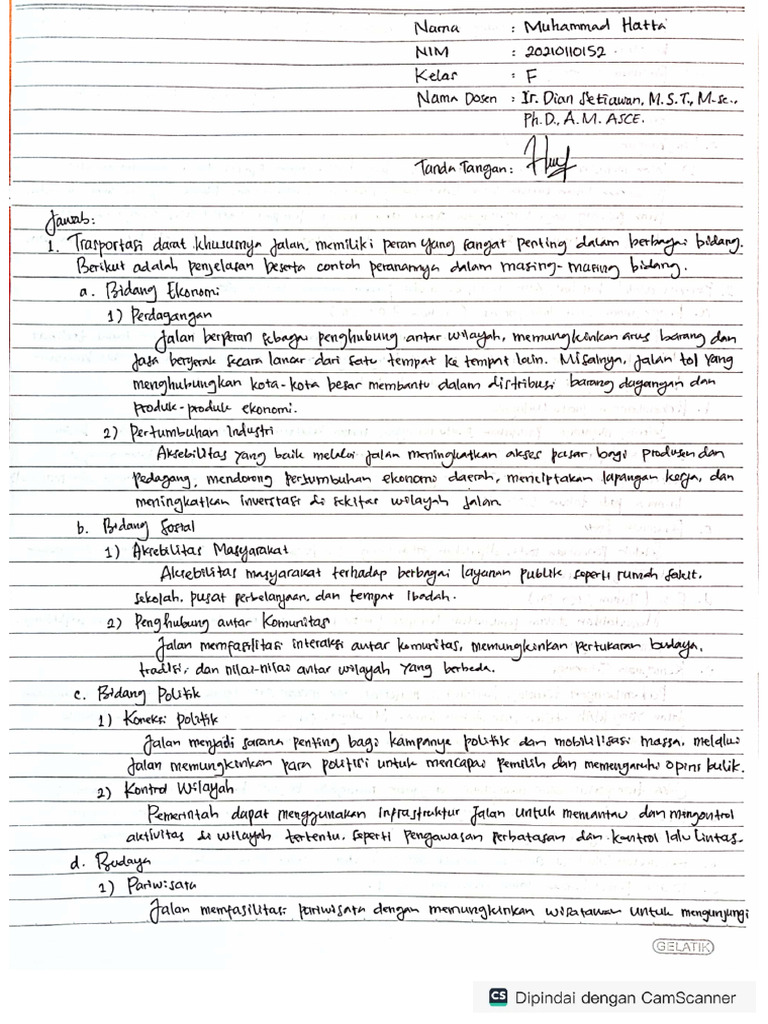 Nama : Muhammad Hatta
NIM : 20210110152
Kelas : F
Nama Dosen : Ir. Dian Setiawan, M.S.T., M.Sc.,
Ph.D., A.M. ASCE.
Tanda Tangan :
Jawab:
1. Trasportasi darat khususnya jalan, memiliki peran yang sangat penting dalam berbagai bidang.
Berikut adalah penjelasan beserta contoh peranannya dalam masing-masing bidang.
a. Bidang Ekonomi
1) Perdagangan
Jalan berperan sebagai penghubung antar wilayah, memungkinkan arus barang dan
jasa bergerak secara lancar dari satu tempat ke tempat lain. Misalnya, jalan tol yang
menghubungkan kota-kota besar membantu dalam distribusi barang dagangan dan
produk-produk ekonomi.
2) Pertumbuhan Industri
Aksebilitas yang baik melalui jalan meningkatkan akses pasar bagi produsen dan
pedagang, mendorong pertumbuhan ekonomi daerah, menciptakan lapangan kerja, dan
meningkatkan investasi di sekitar wilayah jalan.
b. Bidang Sosial
1) Aksebilitas Masyarakat
Aksebilitas masyarakat terhadap berbagai layanan publik seperti rumah sakit,
sekolah, pusat perbelanjaan, dan tempat ibadah.
2) Penghubung antar Komunitas
Jalan memfasilitasi interaksi antar komunitas, memungkinkan pertukaran budaya,
tradisi, dan nilai-nilai antar wilayah yang berbeda.
c. Bidang Politik
1) Koneksi politik
Jalan menjadi sarana penting bagi kampanye politik dan mobililisasi massa, melalui
jalan memungkinkan para politisi untuk mencapai pemilih dan memengaruhi opini bulik.
2) Kontrol Wilayah
Pemerintah dapat menggunakan infrastruktur jalan untuk memantau dan mengontrol
aktivitas di wilayah tertentu, seperti pengawasan perbatasan dan kontrol lalu lintas.
d. Budaya
1) Pariwisata
Jalan memfasilitasi pariwisata dengan memungkinkan wisatawan untuk mengunjungi
GELATIK
CS Dipindai dengan CamScanner